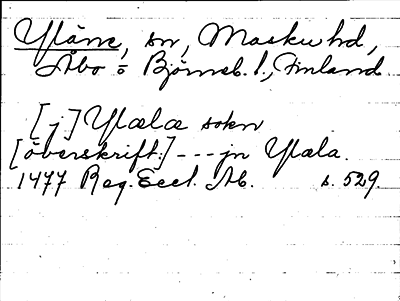 Yläne, sn, Masku hd,
Åbo o Björneb. l., Finland
[j] Ylælæ sokn
[överskrift:] --- jn Ylæla.
1477 Reg. Eccl. Ab. s. 529.